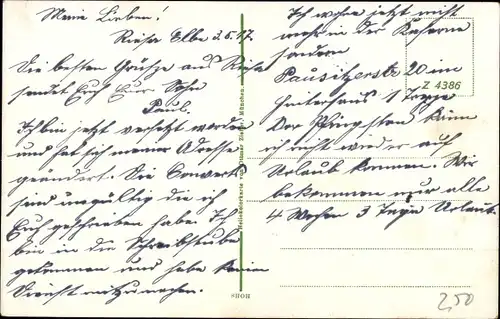 Meine Lieben!
Riesa Elbe 2.5.17.
Die besten Grüße aus Riesa
sendet Euch Euer Sohn
Paul.
Ich bin jetzt versetzt worden
und hat sich meine Adresse
geändert. Die Couverts
sind ungültig die ich
Euch geschrieben habe. Ich
bin in die Schreibstube
gekommen und habe keinen
Dienst mitzumachen.
Ich wohne jetzt nicht
mehr in der Kaserne
sondern
Pausitzerstr 20 im
Hinterhaus 1 Treppe
Vor Pfingsten kann
ich nicht wieder auf
Urlaub kommen. Wir
bekommen nur alle
4 Wochen 3 Tage Urlaub.
Z 4386
HORN
2,50